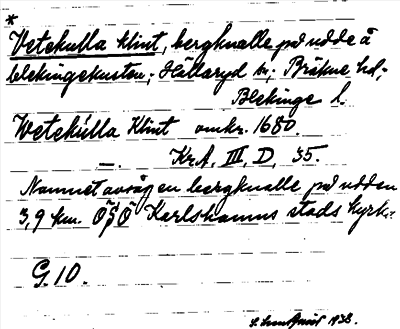 *
Vetekulla klint, bergknalle på udde å
blekingekusten; Hällaryd sn; Bräkne hd;
Blekinge l.
Wetekulla Klint omkr. 1680.
—. Kr.A. III, D, 35.
Namnet avser en bergknalle på udden
3,9 km. ÖSÖ Karlshamns stads kyrka.
G. 10.
1938.